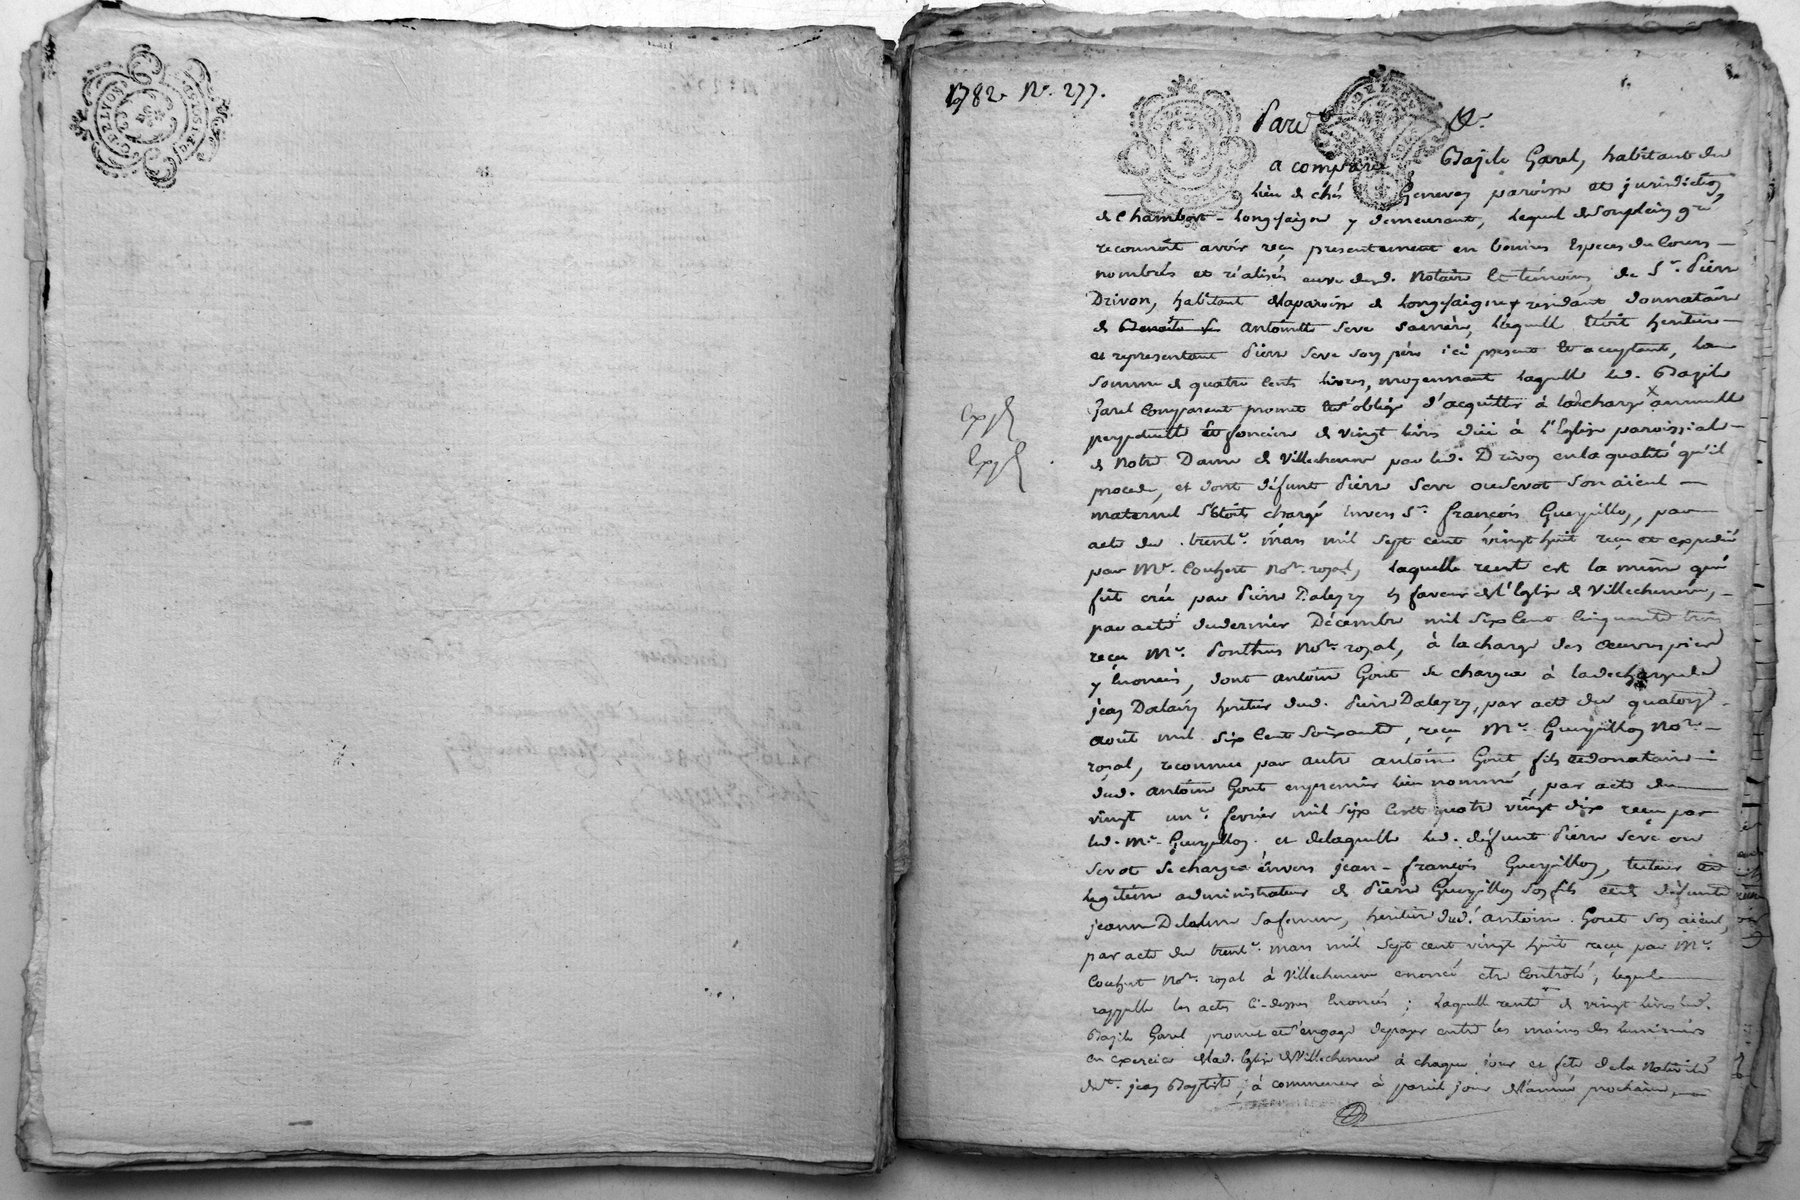 1782. N°. 277.
Pard.t &.
a comparu Bazile Garel, habitant du
lieu de chés Genevey paroisse et jurisdiction
de Chambost-Longesaigne y demeurant, lequel de son plein gré,
reconnoit avoir reçu presentement en bonnes Especes du Cours
nombrés et réalisés au vu dud. Notaire et témoins, de Sr. Pierre
Drivon, habitant de la paroisse de Longesaigne y residant donnataire
de Antoinette Seve sa mère, laquelle étoit heritière
et representant Pierre Seve son père ici present et acceptant, la
somme de quatre cents livres, moyennant laquelle led. Bazile
Garel Comparant promet et s'oblige d'acquitter à la décharge annuelle
perpetuelle et fonciere de vingt livres dûe à l'Eglise paroissiale
de Notre Dame de Villecheneve par led. Drivon en la qualité qu'il
procede, et dont défunt Pierre Seve ou Sevot son aieul
maternel s'étoit chargé envers Sr. François Gueyillon, par
acte du trent.e mars mil sept cent vingt huit reçu et expedié
par Me. Couhert Nore. royal, laquelle rente est la même qui
fut créé par Pierre Daleyzy en faveur de l'Eglise de Villecheneve,
par acte du dernier Décembre mil Six Cent Cinquante trois
reçu Me. Ponthus Nore. royal, à la charge des oeuvres pies
y énoncés, dont antoine Gout se chargea à la décharge de
jean Dalaizy heritier dud. Pierre Daleyzy, par acte du quatorze
août mil six Cent Soixante, reçu Me. Gueyillon Nore.
royal, reconnue par autre antoine Gout fils et donataire
dud. antoine Gout en premier lieu nommé, par acte du
vingt un.e fevrier mil Six Cent quatre vingt dix reçu par
led. Me. Gueyillon et de laquelle led. défunt Pierre Seve ou
Sevot se chargea envers jean-françois Gueyillon, tuteur et
legitime administrateur de Pierre Gueyillon son fils et de défunte
jeanne Delalme sa femme, heritier dud. antoine Gout son aieul,
par acte du trent.e mars mil sept cent vingt huit reçu par Me.
Couhert Nore. royal à Villecheneve énoncé être Controlé, lequel
rappelle les actes Ci-dessus énoncés ; laquelle rente de vingt livres led.
Bazile Garel promet et s'engage de payer entre les mains des luminiers
en exercice de lad. Eglise de Villecheneve à chaque jour et fête de la Nativité
de St. jean Baptiste, à commencer à pareil jour de l'année prochaine,
expd
expd